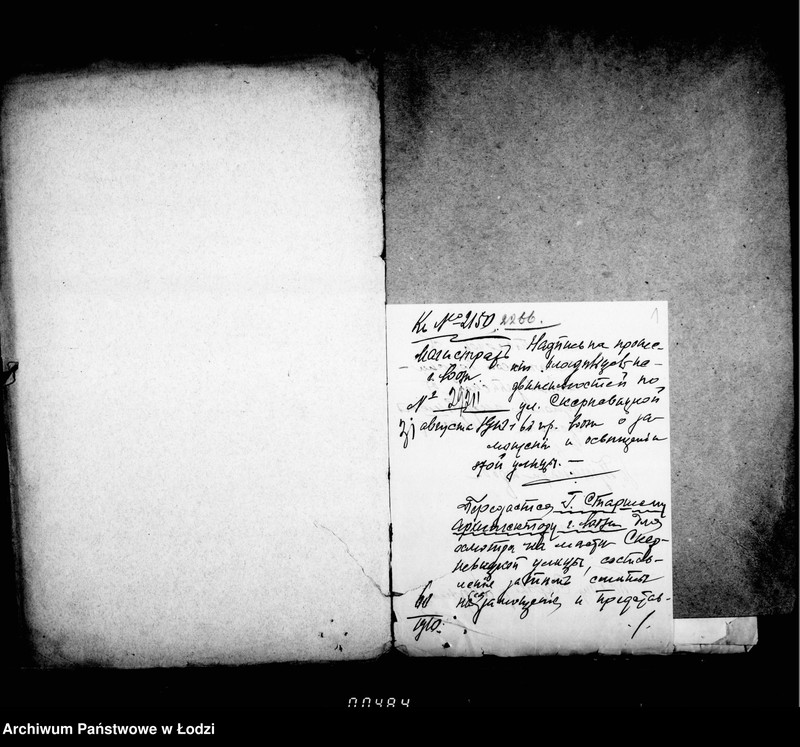 Къ № 2150. 2266.
1
Магистратъ
г. Лодзи.
№ 29211
31 августа 1910
Надпись на
владѣльцевъ не-
движимостей по
ул. Скерневицкой
въ гор. Лодзи о за-
мощеніи и освѣщеніи
этой улицы. —
Передается Г. Старшему
Архитектору г. Лодзи для
осмотра на мѣстѣ Скер-
невицкой улицы, составле-
нія смѣты
на замощеніе и представ-
./.
1910.
00484
Archiwum Państwowe w Łodzi